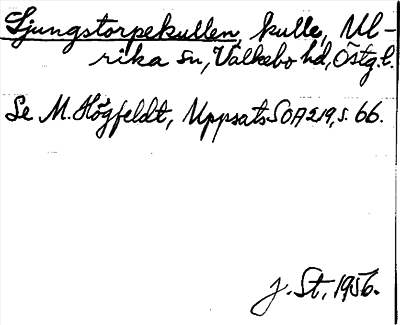 Ljungstorpekullen, kulle, Ul-
rika sn, Valkebo hd, Östg.l.
Se M. Högfeldt, Uppsats SOA 219, s. 66.
J. St. 1956.